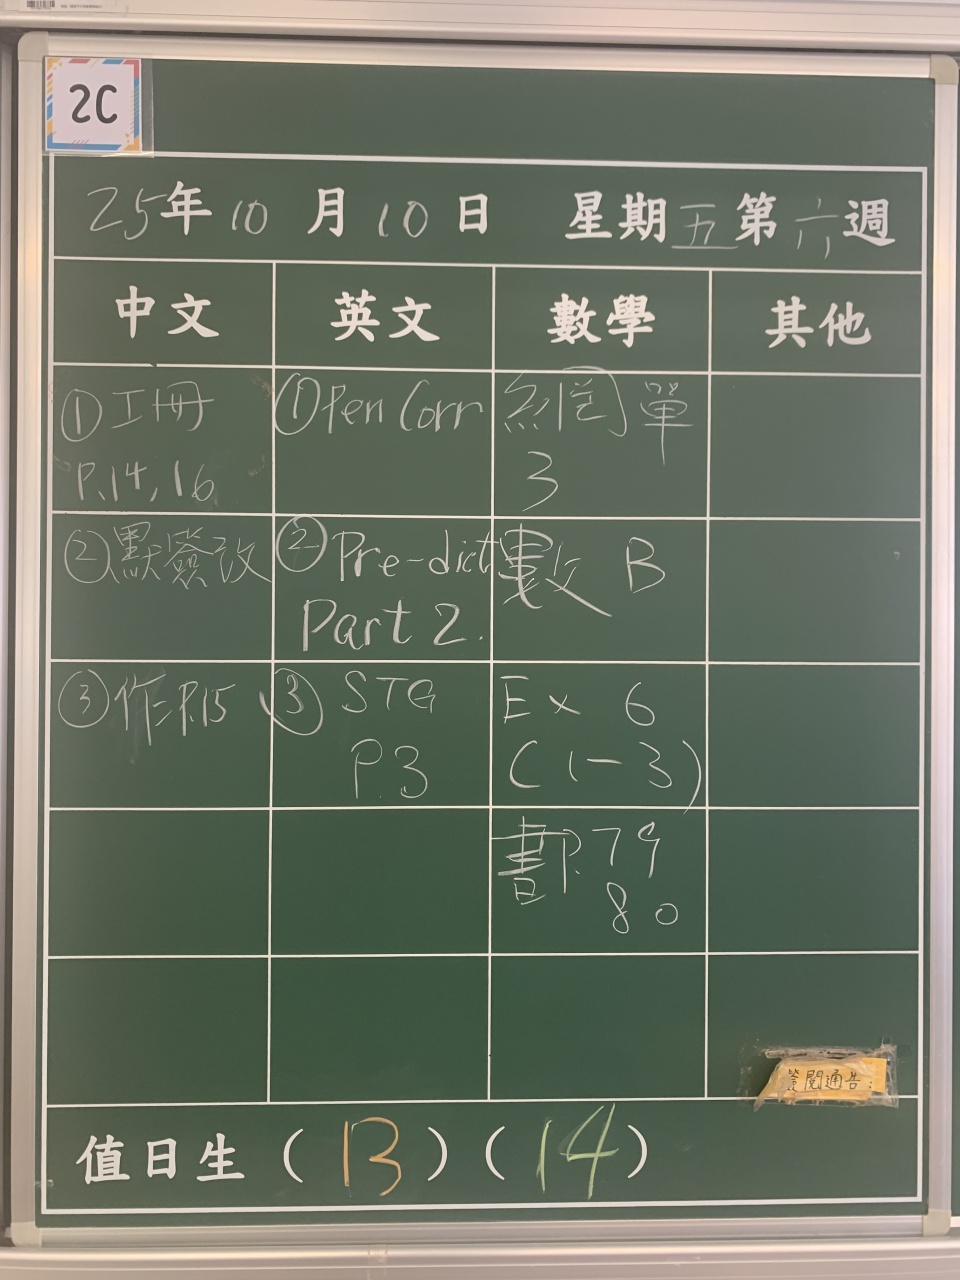 2C
25年10月10日 星期五第六週
中文 英文 數學 其他
①工冊
P.14,16
①Pen Corr
網單
3
②默簽改
②Pre-dict
Part 2.
數B
③作P.15
③STG
P.3
Ex 6
(1-3)
書P.79
80
簽閱通告:
值日生(13)(14)